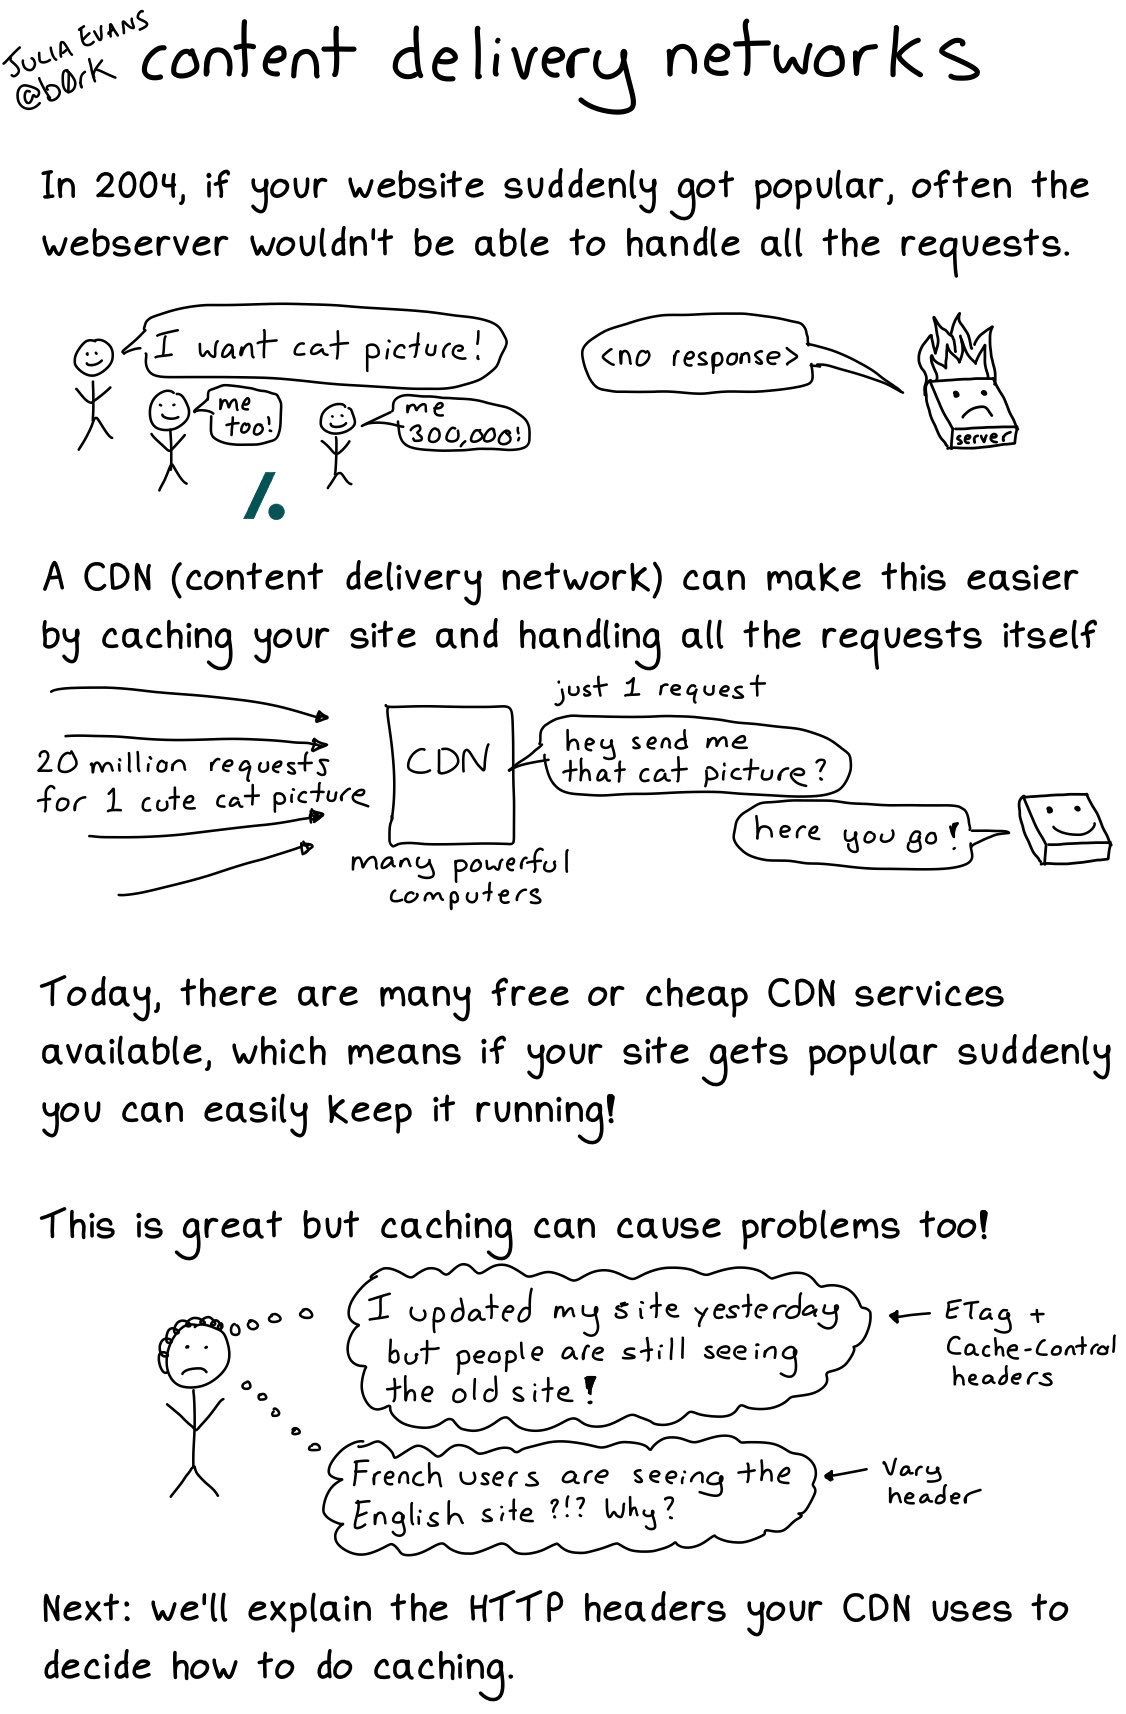 JULIA EVANS
@b0rk
content delivery networks
In 2004, if your website suddenly got popular, often the
webserver wouldn't be able to handle all the requests.
I want cat picture!
me
too!
me
300,000!
<no response>
server
/.
A CDN (content delivery network) can make this easier
by caching your site and handling all the requests itself
20 million requests
for 1 cute cat picture
CDN
many powerful
computers
just 1 request
hey send me
that cat picture?
here you go!
Today, there are many free or cheap CDN services
available, which means if your site gets popular suddenly
you can easily keep it running!
This is great but caching can cause problems too!
I updated my site yesterday
but people are still seeing
the old site!
ETag +
Cache-Control
headers
French users are seeing the
English site ?!? Why?
Vary
header
Next: we'll explain the HTTP headers your CDN uses to
decide how to do caching.